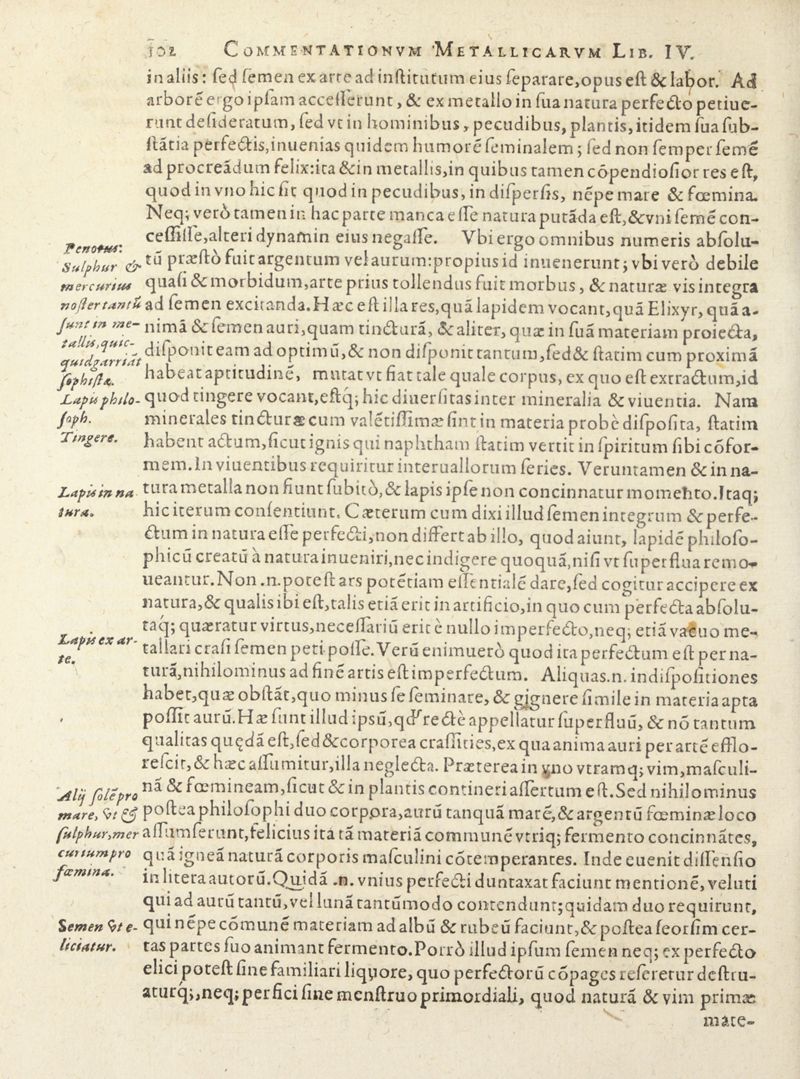 102 COMMENTATIONVM METALLICARVM LIB. IV.
in aliis: sed semen ex arte ad institutum eius separare, opus est & labor. Ad
arborē ergo ipsam accesserunt, & ex metallo in sua natura perfecto petiue-
runt desideratum, sed vt in hominibus, pecudibus, plantis, itidem sua sub-
stātia perfectis, inuenias quidem humorē seminalem; sed non semper semē
ad procreādum felix: ita & in metallis, in quibus tamen cōpendiosior res est,
quod in vno hic sit quod in pecudibus, in dispersis, nēpe mare & fœmina.
Neq; verò tamen in hac parte manca esse natura putāda est, & vni semē con-
cessisse, alteri dynamin eius negasse. Vbi ergo omnibus numeris absolu-
tū præstò fuit argentum vel aurum: propius id inuenerunt; vbi verò debile
quasi & morbidum, arte prius tollendus fuit morbus, & naturæ vis integra
ad semen excitanda. Hæc est illa res, quā lapidem vocant, quā Elixyr, quā a-
nimā & semen auri, quam tincturā, & aliter, quæ in suā materiam proiecta,
disponit eam ad optimū, & non disponit tantum, sed & statim cum proximā
habeat aptitudinē, mutat vt fiat tale quale corpus, ex quo est extractum, id
quod tingere vocant, estq; hic diuersitas inter mineralia & viuentia. Nam
minerales tincturæ cum valētissimæ sint in materia probè disposita, statim
habent actum, sicut ignis qui naphtham statim vertit in spiritum sibi cōfor-
mem. In viuentibus requiritur interuallorum series. Veruntamen & in na-
tura metalla non fiunt subitò, & lapis ipse non concinnatur momento. Itaq;
hic iterum consentiunt. Cæterum cum dixi illud semen integrum & perfe-
ctum in natura esse perfecti, non differt ab illo, quod aiunt, lapidē philoso-
phicū creatū à natura inueniri, nec indigere quoquā, nisi vt superflua remo-
ueantur. Non .n. potest ars potētiam essentialē dare, sed cogitur accipere ex
natura, & qualis ibi est, talis etiā erit in artificio, in quo cum perfecta absolu-
taq; quæratur virtus, necessariū erit è nullo imperfecto, neq; etiā vacuo me-
tallari crasi semen peti posse. Verū enimuerò quod ita perfectum est per na-
turā, nihilominus ad finē artis est imperfectum. Aliquas .n. indispositiones
habet, quæ obstāt, quo minus se seminare, & gignere simile in materia apta
possit aurū. Hæ sunt illud ipsū, qd' rectè appellatur superfluū, & nō tantum
qualitas quędā est, sed & corporea crassities, ex qua anima auri per artē efflo-
rescit, & hæc assumitur, illa neglecta. Præterea in vno vtramq; vim, masculi-
nā & fœmineam, sicut & in plantis contineri assertum est. Sed nihilominus
postea philosophi duo corpora, aurū tanquā marē, & argentū fœminæ loco
assumserunt, felicius ita tā materiā communē vtriq; fermento concinnātes,
quā igneā naturā corporis masculini cōtemperantes. Inde euenit dissensio
in litera autorū. Quidā .n. vnius perfecti duntaxat faciunt mentionē, veluti
qui ad aurū tantū, vel lunā tantūmodo contendunt; quidam duo requirunt,
qui nēpe cōmunē materiam ad albū & rubeū faciunt, & postea seorsim cer-
tas partes suo animant fermento. Porrò illud ipsum semen neq; ex perfecto
elici potest sine familiari liquore, quo perfectorū cōpages referetur destru-
aturq;, neq; perfici sine menstruo primordiali, quod naturā & vim primæ
mate-
Penotus:
Sulphur &
mercurius
noster tantū
sunt in me-
tallis, quic-
quid garriāt
sophistæ.
Lapis philo-
soph.
Tingere.
Lapis in na
tura.
Lapis ex ar-
te.
Alij solē pro
mare, vt &
sulphur, mer
curium pro
fœmina.
Semen vt e-
liciatur.